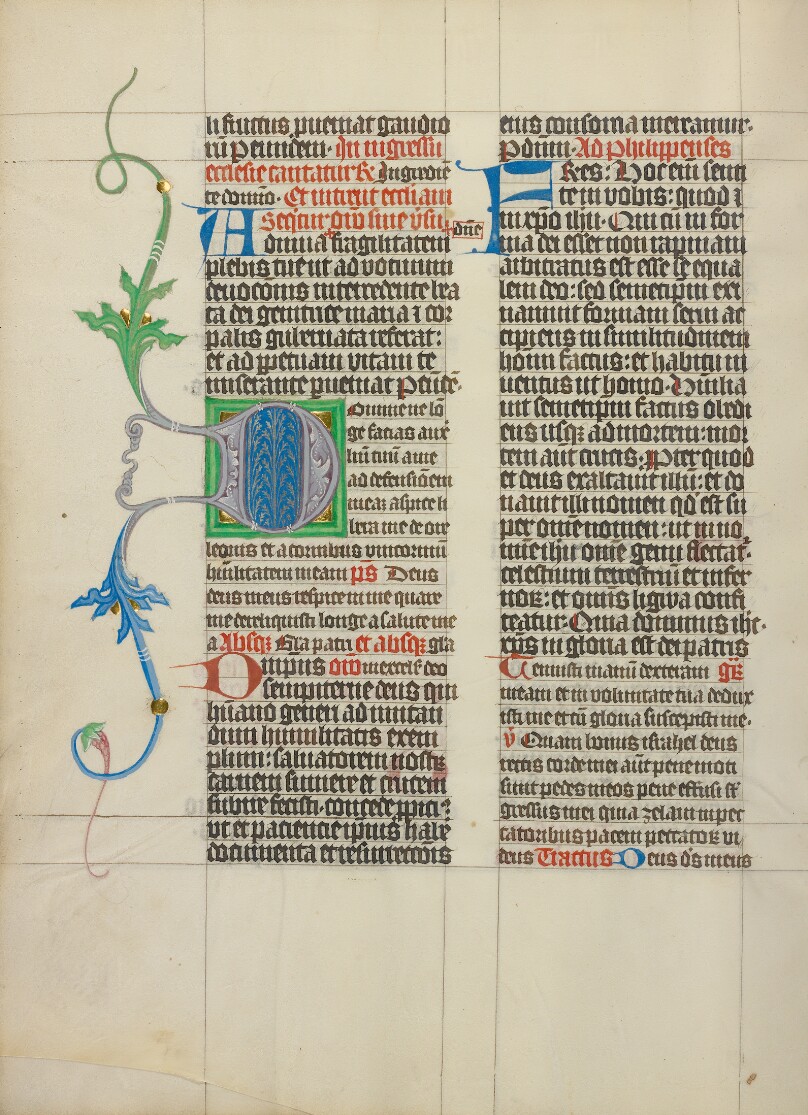 li fructus p̲ueniat gaudio
rū Per eundem· In ingressu
ecclesie cantatur R̲ Ingredie̅
te domino· Et intrent eccliam
Seq̅tur or̅o sine v̅su
dn̅e
Adiuua fragilitatem
plebis tue ut ad votiuum
deuoc̅onis intercedente bea
ta dei genitrice maria ⁊ cor
p̲alis gubernata referat:
et ad p̲petuam vitam te
miserante p̲ueniat
Domine ne lo̅
ge facias aux
liū tuū a me
ad defensiōem
mea̅ aspice li
bera me de ore
leonis et a cornibus vnicorniū
hūilitatem meam ps Deus
deus meus respice in me quare
me dereliquisti longe a salute me
a Absq̅ Gl̅a patri et absq̅ gl̅a
Om̅ps or̅o in excels̅ deo
sempiterne deus qui
hūano generi ad imitan
dum humilitatis exem
plum: saluatorem nostrꝝ
carnem sumere et crucem
subire fecisti· concede
vt et paciencie ip̅ius h̅ere
documenta et resurrecc̅ois
eius consorcia mereamur·
P dn̅m· Ad Philippenses
Fr̅es: Hoc em̅ senti
te in vobis: quod ⁊
in xp̅o ih̅u· Qui cū in for
ma dei esset non rapinam
arbitratus est esse se equa
lem deo: sed semetip̅m exi
naniuit formam serui ac
cipiens in similitudinem
hoīm factus: et habitu in
uentus ut homo· Humilia
uit semetip̅m factus obedi
ens usq̅ ad mortem: mor
tem aut̅ crucis· Propter quod
et deus exaltauit illū: et do
nauit illi nomen qd̅ est su
per om̅e nomen: ut in no
mine ih̅u om̅e genu flectat̅·
celestium terrestriū et infer
noꝝ: et omnis ligwa confi
teatur· Quia dominus ih̅c·
xp̅s in gloria est dei patris
Tenuisti manū dexteram
meam et in voluntate tua dedux
isti me et cū gloria suscepisti me·
v̅ Quam bonus israhel deus
rectis corde mei aūt pene moti
sunt pedes mei pene effusi sūt
gressus mei quia zelaui in pec
catoribus pacem peccatoꝝ vi
dens Tractus Deus d̅s meus